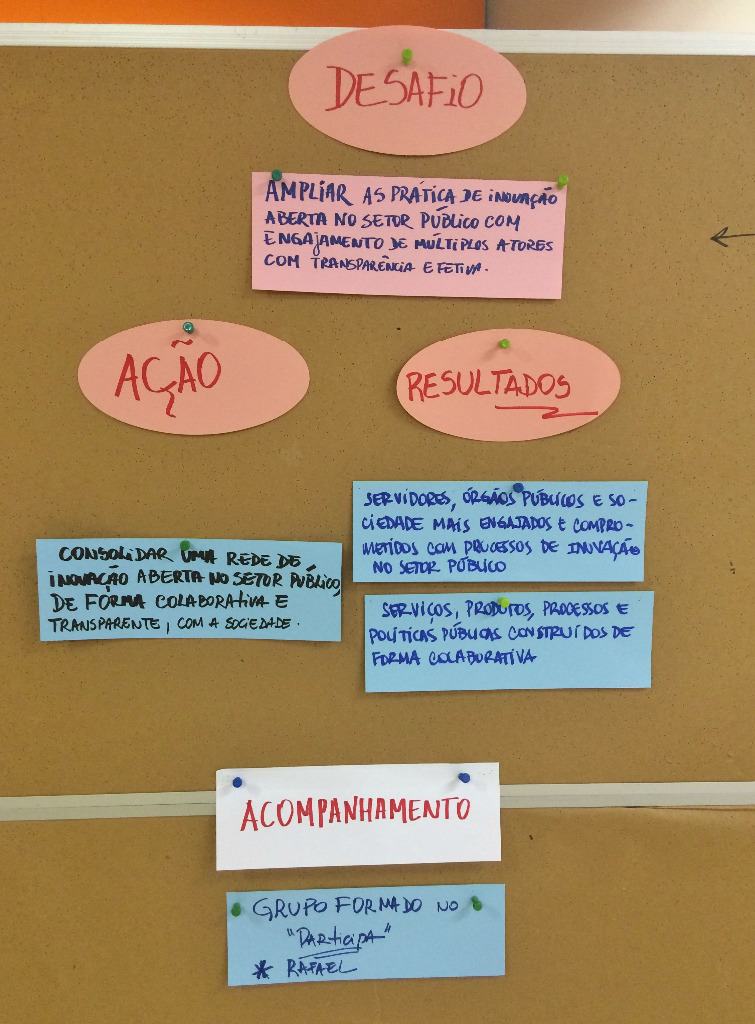 DESAFIO
AMPLIAR AS PRÁTICA DE INOVAÇÃO
ABERTA NO SETOR PÚBLICO COM
ENGAJAMENTO DE MÚLTIPLOS ATORES
COM TRANSPARÊNCIA E EFETIVA.
AÇÃO
RESULTADOS
CONSOLIDAR UMA REDE DE
INOVAÇÃO ABERTA NO SETOR PÚBLICO,
DE FORMA COLABORATIVA E
TRANSPARENTE, COM A SOCIEDADE.
SERVIDORES, ÓRGÃOS PÚBLICOS E SO-
CIEDADE MAIS ENGAJADOS E COMPRO-
METIDOS COM PROCESSOS DE INOVAÇÃO
NO SETOR PÚBLICO
SERVIÇOS, PRODUTOS, PROCESSOS E
POLÍTICAS PÚBLICAS CONSTRUÍDOS DE
FORMA COLABORATIVA
ACOMPANHAMENTO
GRUPO FORMADO NO
"PARTICIPA"
* RAFAEL